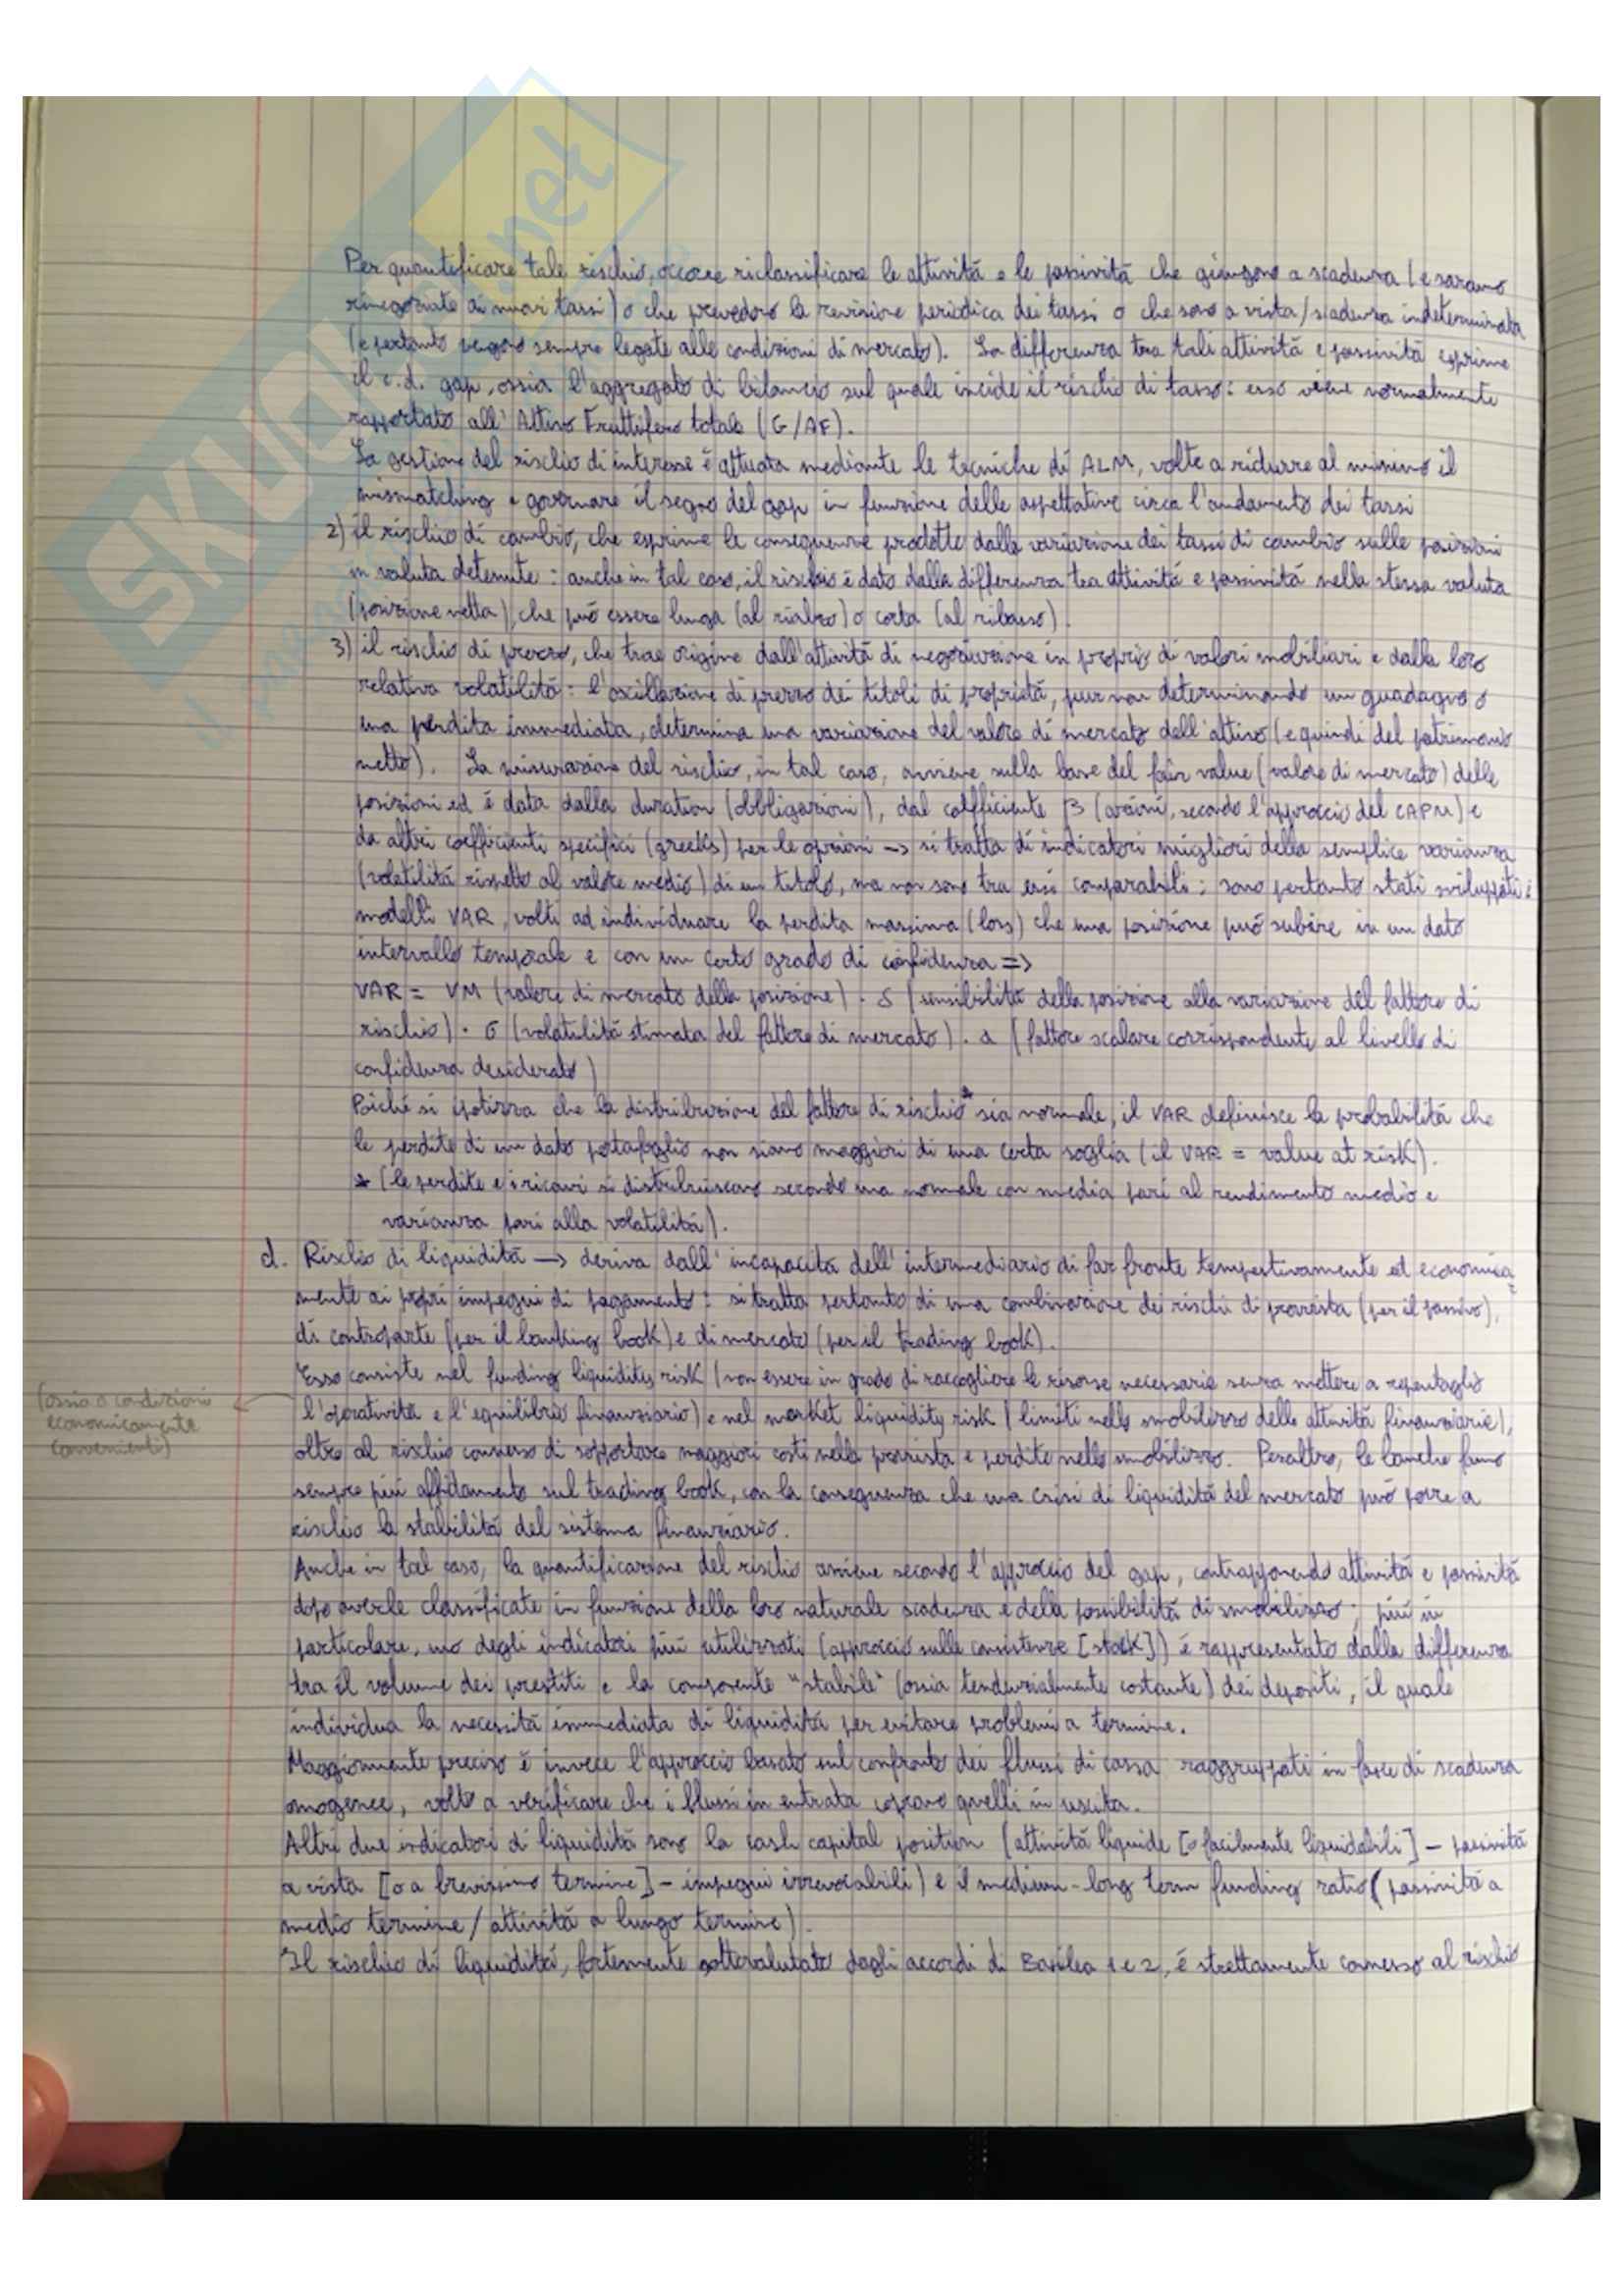 SKUOLA.net
Per quantificare tale rischio, occorre riclassificare le attività e le passività che giungono a scadenza (e saranno
rinegoziate ai nuovi tassi) o che prevedono la revisione periodica dei tassi o che sono a vista/scadenza indeterminata
(e pertanto vengono sempre legate alle condizioni di mercato). La differenza tra tali attività e passività esprime
il c.d. gap, ossia l'aggregato di bilancio sul quale incide il rischio di tasso: esso viene normalmente
rapportato all'Attivo Fruttifero totale (G/AF).
La gestione del rischio di interesse è attuata mediante le tecniche di ALM, volte a ridurre al minimo il
mismatching e governare il segno del gap in funzione delle aspettative circa l'andamento dei tassi
2) il rischio di cambio, che esprime le conseguenze prodotte dalla variazione dei tassi di cambio sulle posizioni
in valuta detenute: anche in tal caso, il rischio è dato dalla differenza tra attività e passività nella stessa valuta
(posizione netta), che può essere lunga (al rialzo) o corta (al ribasso).
3) il rischio di prezzo, che trae origine dall'attività di negoziazione in proprio di valori mobiliari e dalla loro
relativa volatilità: l'oscillazione di prezzo dei titoli di proprietà, pur non determinando un guadagno o
una perdita immediata, determina una variazione del valore di mercato dell'attivo (e quindi del patrimonio
netto). La misurazione del rischio, in tal caso, avviene sulla base del fair value (valore di mercato) delle
posizioni ed è data dalla duration (obbligazioni), dal coefficiente β (azioni, secondo l'approccio del CAPM) e
da altri coefficienti specifici (greeks) per le opzioni -> si tratta di indicatori migliori della semplice varianza
(volatilità rispetto al valore medio) di un titolo, ma non sono tra essi comparabili; sono pertanto stati sviluppati i
modelli VAR, volti ad individuare la perdita massima (loss) che una posizione può subire in un dato
intervallo temporale e con un certo grado di confidenza =>
VAR = VM (valore di mercato della posizione) · S (sensibilità della posizione alla variazione del fattore di
rischio) · σ (volatilità stimata del fattore di mercato) · a (fattore scalare corrispondente al livello di
confidenza desiderato)
Poiché si ipotizza che la distribuzione del fattore di rischio* sia normale, il VAR definisce la probabilità che
le perdite di un dato portafoglio non siano maggiori di una certa soglia (il VAR = value at risk).
* (le perdite e i ricavi si distribuiscono secondo una normale con media pari al rendimento medio e
varianza pari alla volatilità).
d. Rischio di liquidità -> deriva dall'incapacità dell'intermediario di far fronte tempestivamente ed economica-
mente ai propri impegni di pagamento: si tratta pertanto di una combinazione dei rischi di provvista (per il passivo),
di controparte (per il banking book) e di mercato (per il trading book).
Esso consiste nel funding liquidity risk (non essere in grado di raccogliere le risorse necessarie senza mettere a repentaglio
l'operatività e l'equilibrio finanziario) e nel market liquidity risk (limiti nello smobilizzo delle attività finanziarie),
(ossia a condizioni
economicamente
convenienti)
oltre al rischio connesso di sopportare maggiori costi nella provvista e perdite nello smobilizzo. Peraltro, le banche fanno
sempre più affidamento sul trading book, con la conseguenza che una crisi di liquidità del mercato può porre a
rischio la stabilità del sistema finanziario.
Anche in tal caso, la quantificazione del rischio avviene secondo l'approccio del gap, contrapponendo attività e passività
dopo averle classificate in funzione della loro naturale scadenza e della possibilità di smobilizzo; più in
particolare, uno degli indicatori più utilizzati (approccio sulle consistenze [stock]) è rappresentato dalla differenza
tra il volume dei prestiti e la componente "stabile" (ossia tendenzialmente costante) dei depositi, il quale
individua la necessità immediata di liquidità per evitare problemi a termine.
Maggiormente preciso è invece l'approccio basato sul confronto dei flussi di cassa raggruppati in fasce di scadenza
omogenee, volto a verificare che i flussi in entrata coprano quelli in uscita.
Altri due indicatori di liquidità sono la cash capital position (attività liquide [o facilmente liquidabili] - passività
a vista [o a brevissimo termine] - impegni irrevocabili) e il medium-long term funding ratio (passività a
medio termine / attività a lungo termine).
Il rischio di liquidità, fortemente sottovalutato dagli accordi di Basilea 1 e 2, è strettamente connesso al rischio